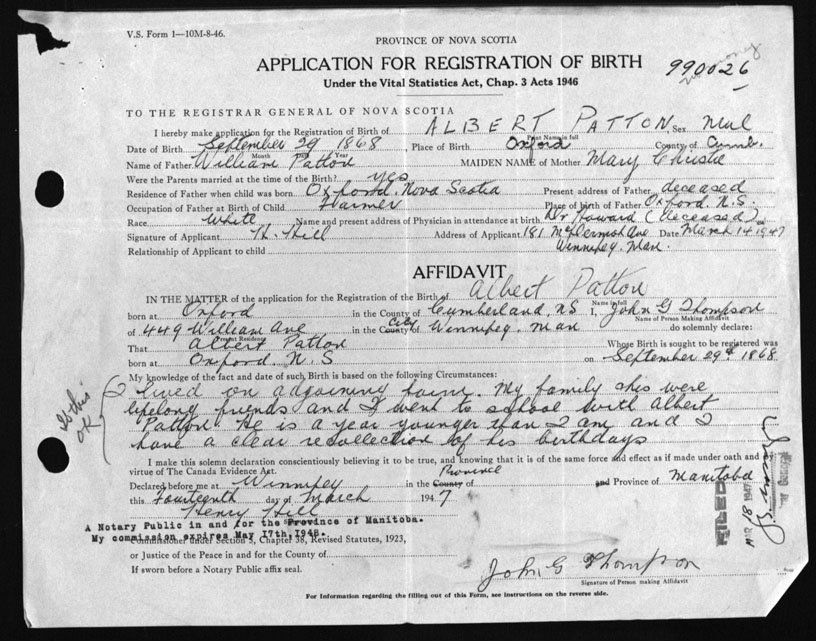 V.S. Form 1—10M-8-46.
PROVINCE OF NOVA SCOTIA
APPLICATION FOR REGISTRATION OF BIRTH
990026
Under the Vital Statistics Act, Chap. 3 Acts 1946
TO THE REGISTRAR GENERAL OF NOVA SCOTIA
I hereby make application for the Registration of Birth of ALBERT PATTON Sex Mal
Print Name in full
Date of Birth September 29 1868 Place of Birth Oxford County of Cumb.
Month Year
Name of Father William Patton MAIDEN NAME of Mother Mary Christie
Were the Parents married at the time of the Birth? yes
Residence of Father when child was born Oxford, Nova Scotia Present address of Father deceased
Occupation of Father at Birth of Child Farmer Place of birth of Father Oxford N.S.
Race White Name and present address of Physician in attendance at birth Dr Howard (deceased)
Signature of Applicant H. Hill Address of Applicant 181 McDermot Ave Date March 14 1947
Winnipeg, Man.
Relationship of Applicant to child
AFFIDAVIT
IN THE MATTER of the application for the Registration of the Birth of Albert Patton
Name in full
born at Oxford in the County of Cumberland, NS I, John G Thompson
Name of Person Making Affidavit
of 449 William Ave in the County of City Winnipeg, Man do solemnly declare:
Present Residence
That Albert Patton Whose Birth is sought to be registered was
born at Oxford, N.S on September 29th 1868
My knowledge of the fact and date of such Birth is based on the following Circumstances:
I lived on adjoining farm. My family & his were
lifelong friends and I went to school with Albert
Patton. He is a year younger than I am and I
have a clear recollection of his birthdays
Is this OK
I make this solemn declaration conscientiously believing it to be true, and knowing that it is of the same force and effect as if made under oath and by
virtue of The Canada Evidence Act.
Declared before me at Winnipeg in the County of Province and Province of Manitoba
this Fourteenth day of March 1947
Henry Hill
A Notary Public in and for the Province of Manitoba.
My commission expires May 17th, 1948.
Commissioner under Section 5, Chapter 38, Revised Statutes, 1923,
or Justice of the Peace in and for the County of
If sworn before a Notary Public affix seal.
John G Thompson
Signature of Person making Affidavit
For Information regarding the filling out of this Form, see instructions on the reverse side.
FILED
MAR 18 1947